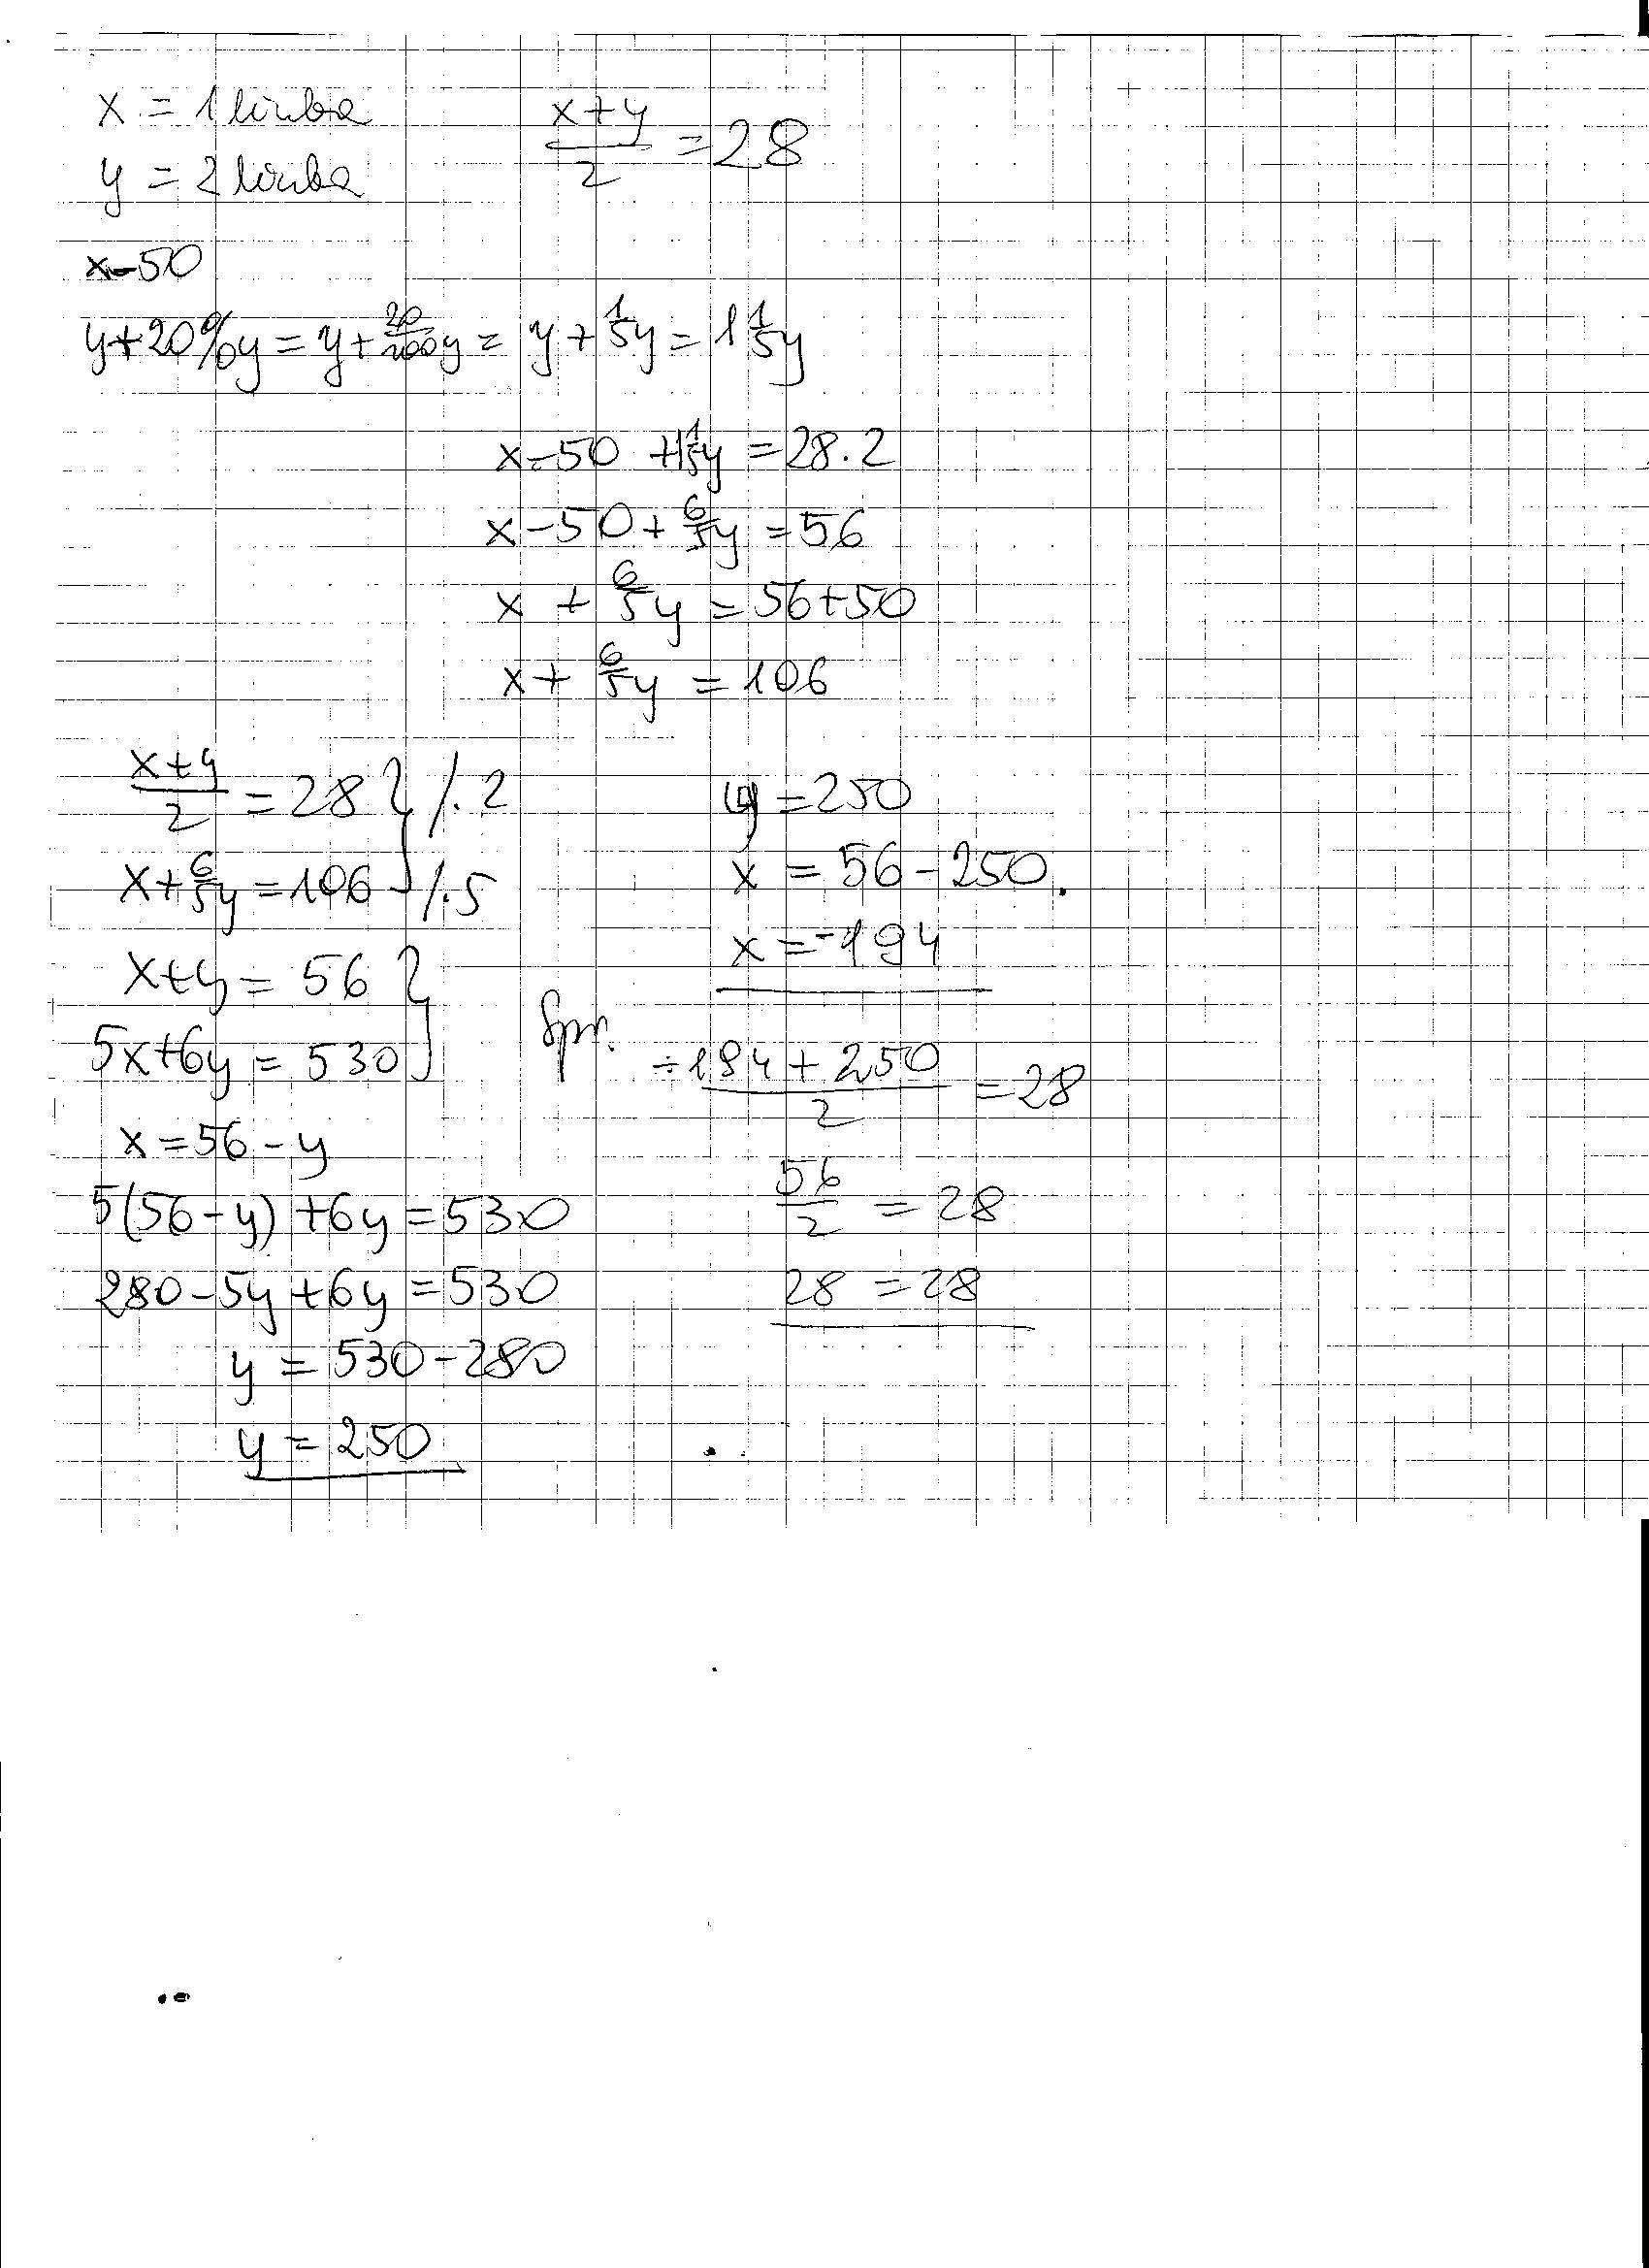 x = 1 liczba
y = 2 liczba
x+y/2 = 28
x-50
y+20%y = y+20/100y = y+1/5y = 1 1/5y
x-50 +1 1/5y = 28.2
x-50+6/5y = 56
x + 6/5y = 56+50
x + 6/5y = 106
x+y/2 = 28 } /.2
x+6/5y = 106 } /.5
x+y = 56 }
5x+6y = 530 }
x = 56-y
5(56-y)+6y = 530
280-5y+6y = 530
y = 530-280
y = 250
y = 250
x = 56-250.
x = -194
Spr.
-194+250/2 = 28
56/2 = 28
28 = 28